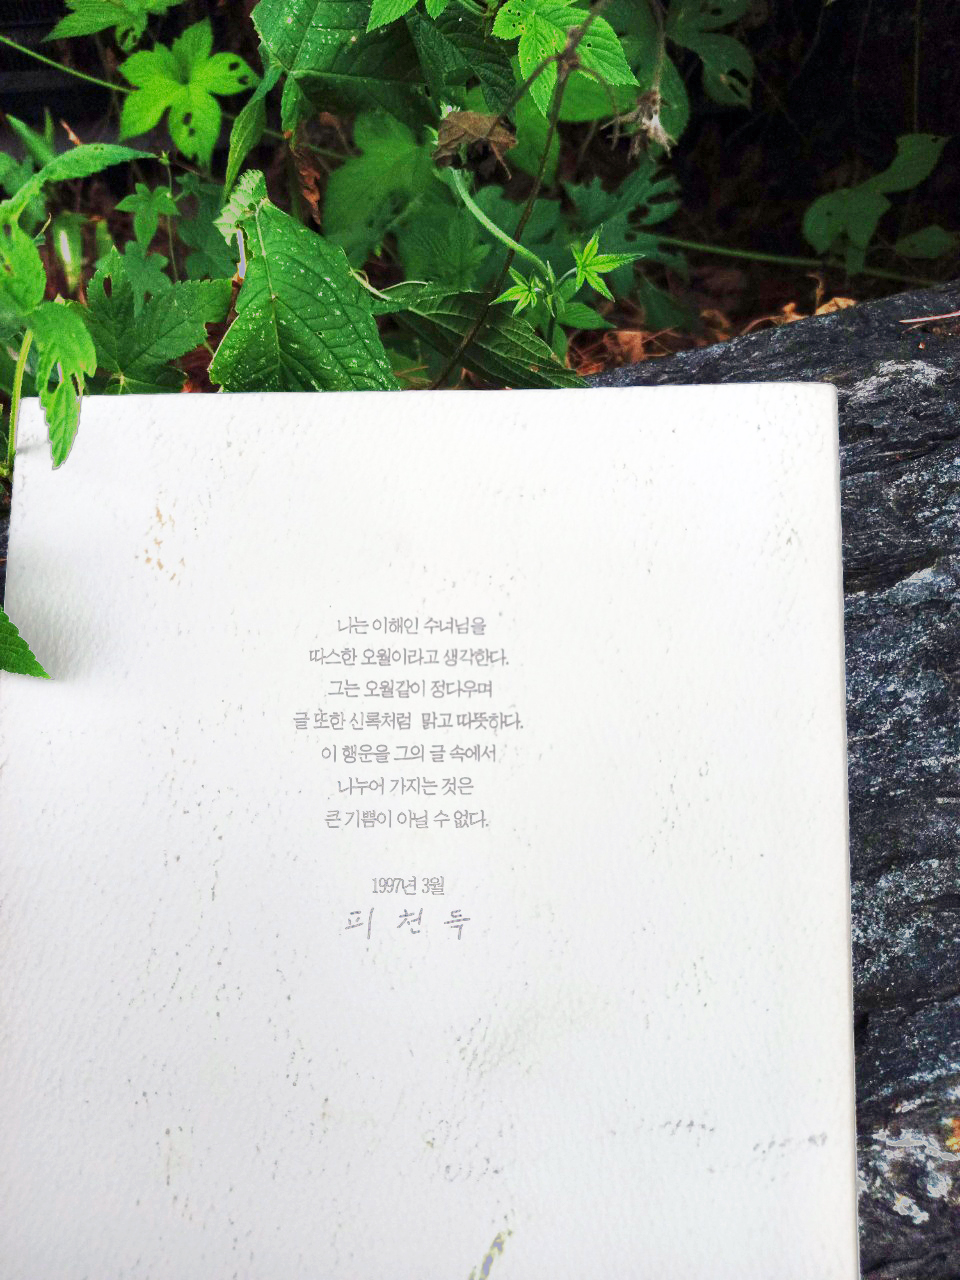 나는 이해인 수녀님을
따스한 오월이라고 생각한다.
그는 오월같이 정다우며
글 또한 신록처럼 맑고 따뜻하다.
이 행운을 그의 글 속에서
나누어 가지는 것은
큰 기쁨이 아닐 수 없다.
1997년 3월
피 천 득